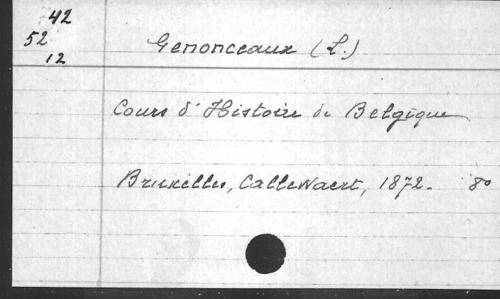 42
52
12
Genonceaux (L.)
Cours d'Histoire de Belgique
Bruxelles, Callewaert, 1872. 8º